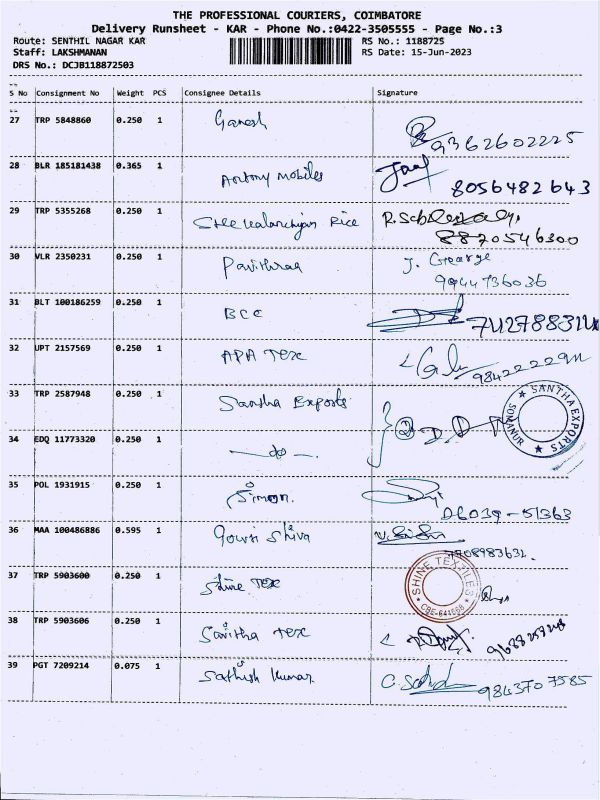 THE PROFESSIONAL COURIERS, COIMBATORE
Delivery Runsheet - KAR - Phone No.:0422-3505555 - Page No.:3
Route: SENTHIL NAGAR KAR
RS No.: 1188725
Staff: LAKSHMANAN
RS Date: 15-Jun-2023
DRS No.: DCJB118872503
S No Consignment No Weight PCS Consignee Details Signature
27 TRP 5848860 0.250 1 Ganesh
9362602225
28 BLR 185181438 0.365 1 Antony mobiles
8056482643
29 TRP 5355268 0.250 1 Rice
8870546300
30 VLR 2350231 0.250 1 Pavithraa J. George
9944736036
31 BLT 100186259 0.250 1 BCC
32 UPT 2157569 0.250 1 APA Tex
33 TRP 2587948 0.250 1 Santha Exports
SANTHA EXPORTS
SOMANUR
34 EDQ 11773320 0.250 1
35 POL 1931915 0.250 1 Simon.
D6039-51363
36 MAA 100486886 0.595 1 Gowri Shiva
7708983632.
37 TRP 5903600 0.250 1 Shine Tex
SHINE TEXTILES
CBE-641668
38 TRP 5903606 0.250 1 Savitha Tex
39 PGT 7209214 0.075 1 Sathish Kumar
9843707585